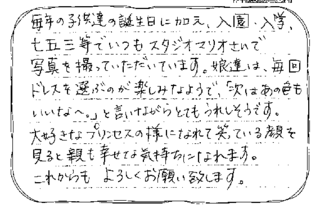 毎年の子供達の誕生日に加え、入園・入学、
七五三等でいつもスタジオマリオさんで
写真を撮っていただいています。娘達は、毎回
ドレスを選ぶのが楽しみなようで、「次はあの色も
いいなぁ。」と言いながらとてもうれしそうです。
大好きなプリンセスの様になれて笑っている顔を
見ると親も幸せな気持ちになれます。
これからも よろしくお願い致します。